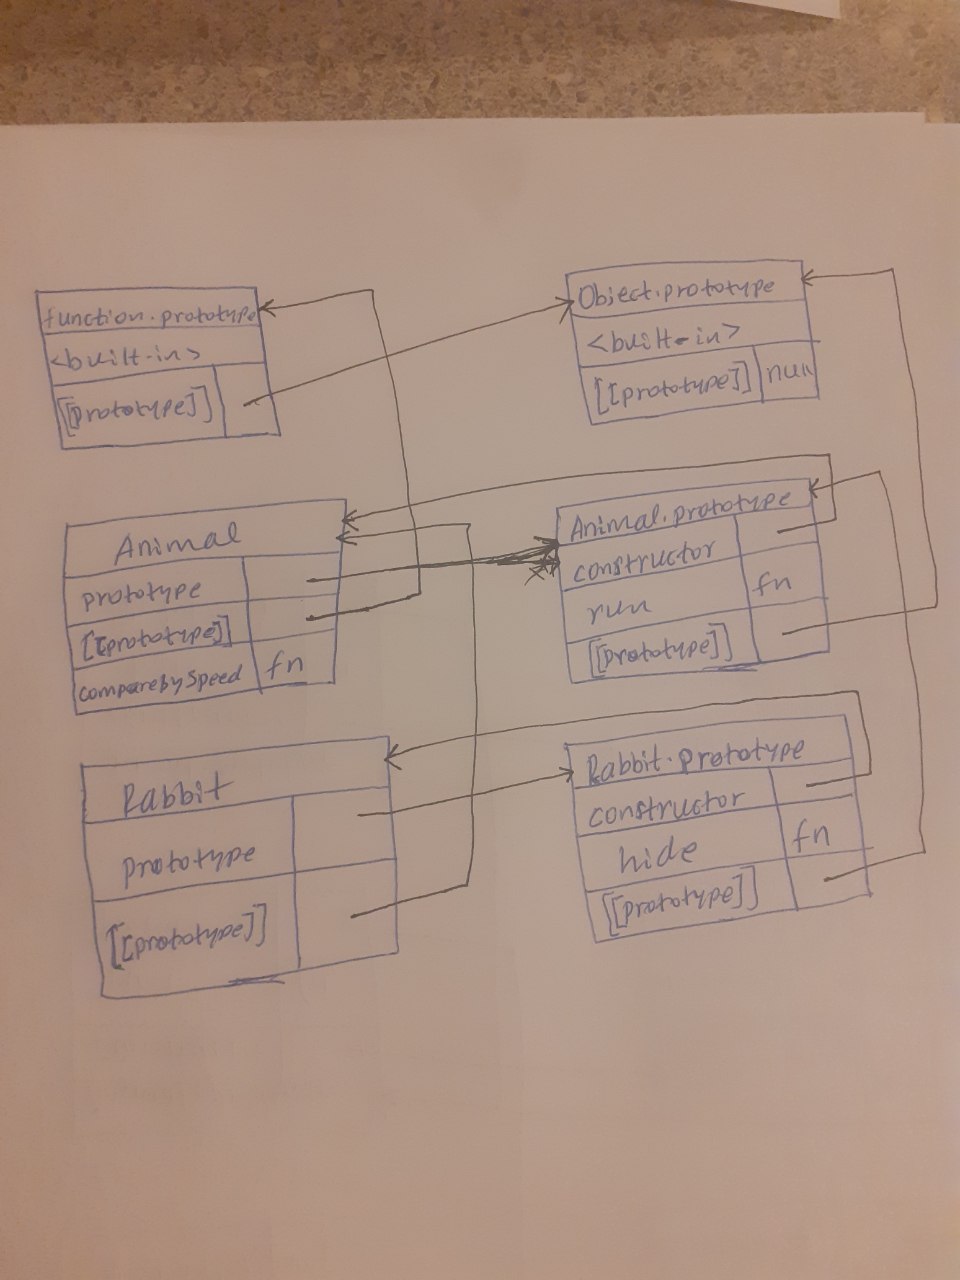 function.prototype
<built-in>
[[prototype]]
Object.prototype
<built-in>
[[prototype]] null
Animal
prototype
[[prototype]]
comparebySpeed fn
Animal.prototype
constructor
run fn
[[prototype]]
Rabbit
prototype
[[prototype]]
Rabbit.prototype
constructor
hide fn
[[prototype]]